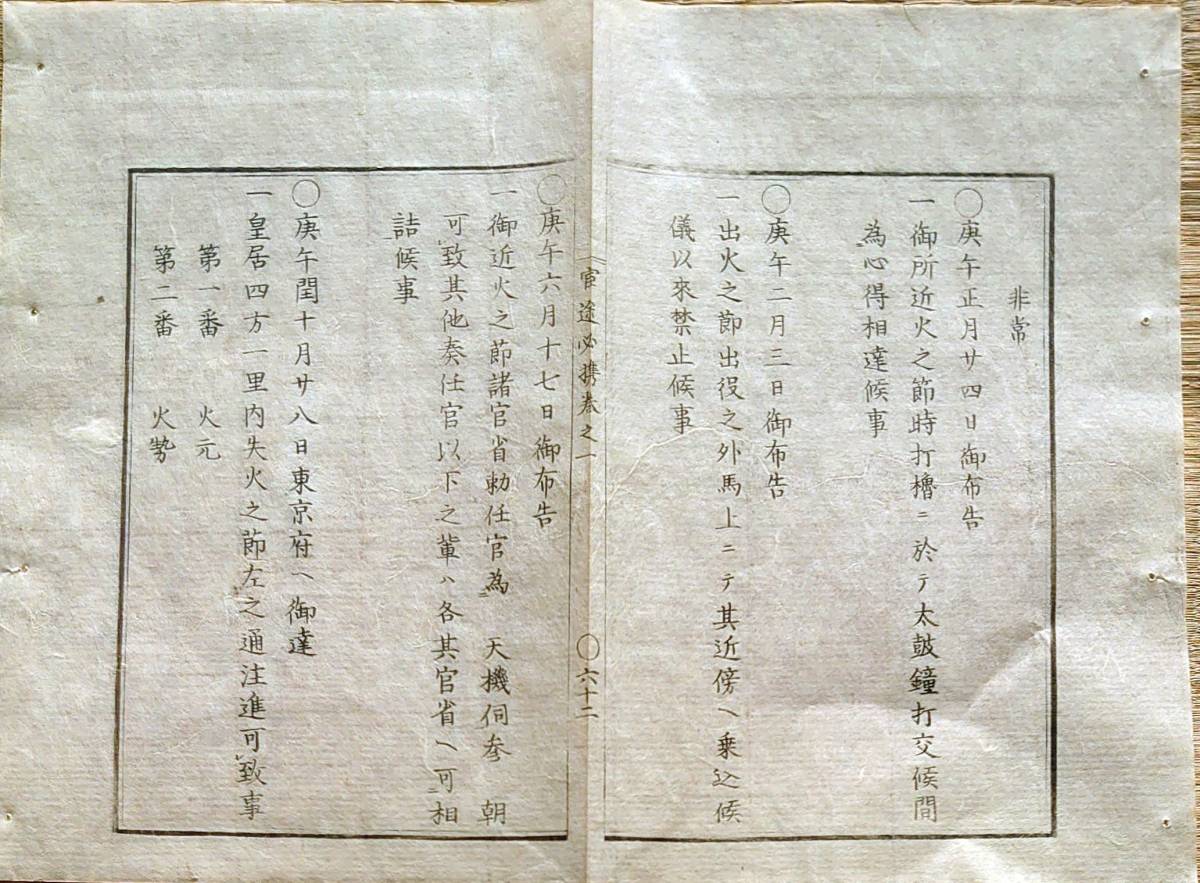 非常
〇庚午正月廿四日御布告
一御所近火之節時打櫓ニ於テ太鼓鐘打交候間
為心得相達候事
〇庚午二月三日御布告
一出火之節出役之外馬上ニテ其近傍ヘ乗込候
儀以来禁止候事
官途必携巻之一
〇六十二
〇庚午六月十七日御布告
一御近火之節諸官省勅任官為 天機伺参 朝
可致其他奏任官以下之輩ハ各其官省ヘ可相
詰候事
〇庚午閏十月廿八日東京府ヘ御達
一皇居四方一里内失火之節左之通注進可致事
第一番 火元
第二番 火勢